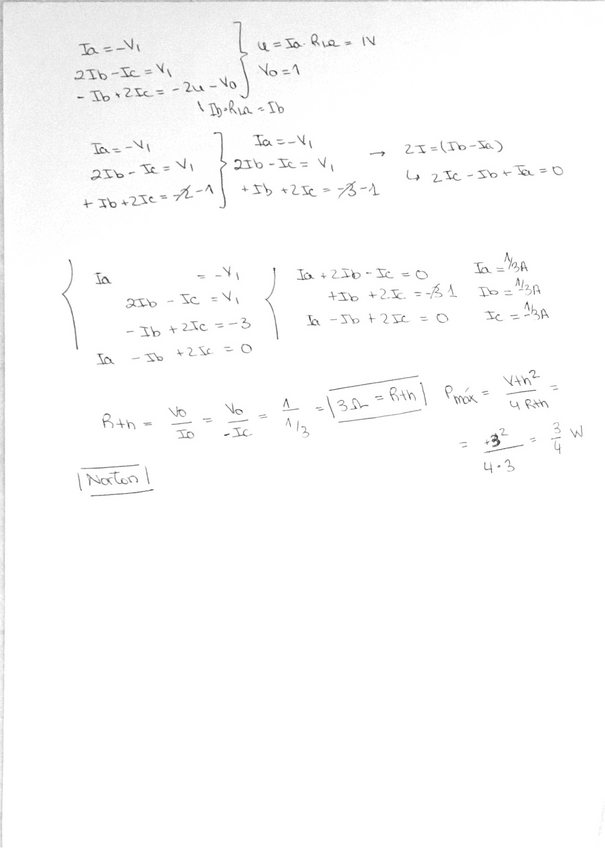 Ia = -V₁
2Ib - Ic = V₁
-Ib + 2Ic = -2u - Vo
u = Ia · R1Ω = 1V
Vo = 1
Ib·R1Ω = Ib
Ia = -V₁
2Ib - Ic = V₁
+Ib + 2Ic = -2 - 1
Ia = -V₁
2Ib - Ic = V₁
+Ib + 2Ic = -3 - 1
→ 2I = (Ib - Ia)
↳ 2Ic - Ib + Ia = 0
Ia = -V₁
2Ib - Ic = V₁
-Ib + 2Ic = -3
Ia - Ib + 2Ic = 0
Ia + 2Ib - Ic = 0
+Ib + 2Ic = -3 1
Ia - Ib + 2Ic = 0
Ia = 1/3A
Ib = -1/3A
Ic = -1/3A
Rth = Vo/Io = Vo/-Ic = 1/1/3 = 3Ω = Rth
Pmáx = Vth²/4Rth =
= +3²/4·3 = 3/4 W
Norton